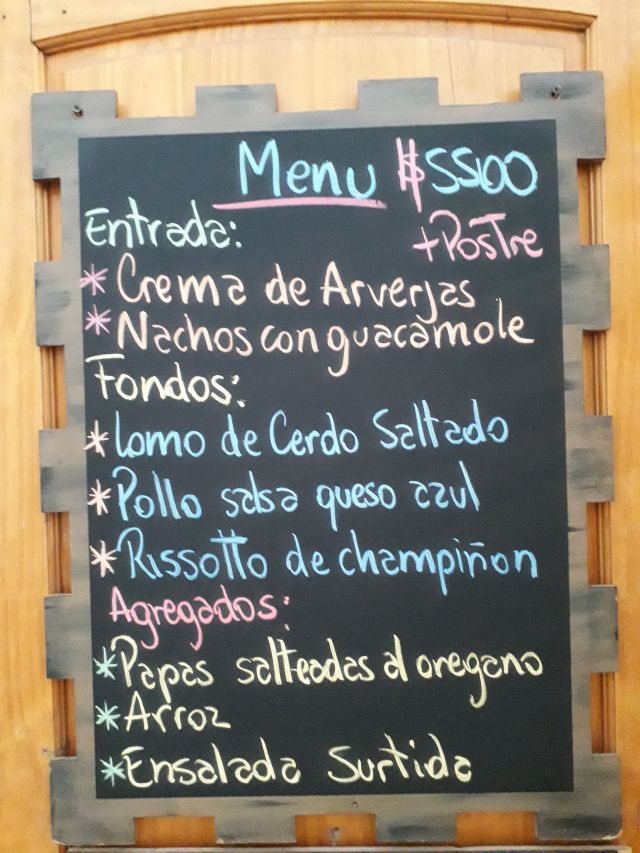 Menu $5500
+Postre
Entrada:
* Crema de Arverjas
* Nachos con guacamole
Fondos:
* Lomo de Cerdo Saltado
* Pollo salsa queso azul
* Rissotto de champiñon
Agregados:
* Papas salteadas al oregano
* Arroz
* Ensalada Surtida